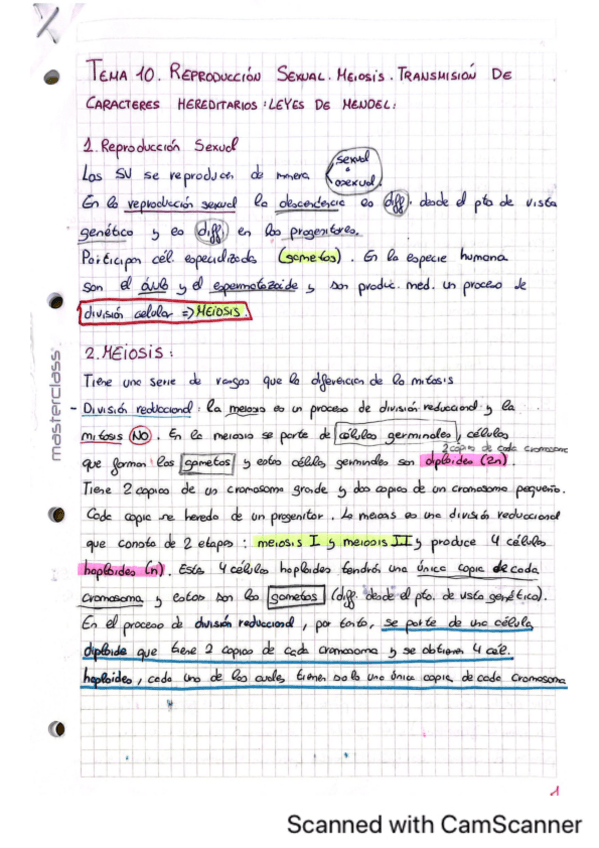 TEMA 10. REPRODUCCIÓN SEXUAL. MEIOSIS. TRANSMISIÓN DE
CARACTERES HEREDITARIOS: LEYES DE MENDEL:
1. Reproducción Sexual
Los SV se reproducen de manera sexual o asexual.
En la reproducción sexual la descendencia es diff. desde el pto de vista
genético y es diff. en los progenitores.
Participan cél. especializadas (gametos). En la especie humana
son el óvulo y el espermatozoide y son produc. med. un proceso de
división celular => MEIOSIS.
2. MEIOSIS:
Tiene una serie de rasgos que la diferencian de la mitosis
- División reduccional: la meiosis es un proceso de división reduccional y la
mitosis NO. En la meiosis se parte de células germinales, células
2 copias de cada cromosoma
que forman los gametos y estas células germinales son diploides (2n).
Tiene 2 copias de un cromosoma grande y dos copias de un cromosoma pequeño.
Cada copia se hereda de un progenitor. La meiosis es una división reduccional
que consta de 2 etapas: meiosis I y meiosis II y produce 4 células
haploides (n). Estas 4 células haploides tendrán una única copia de cada
cromosoma y estos son los gametos (diff. desde el pto. de vista genético).
En el proceso de división reduccional, por tanto, se parte de una célula
diploide que tiene 2 copias de cada cromosoma y se obtienen 4 cél.
haploides, cada una de las cuales tienen solo una única copia de cada cromosoma
1
masterclass
Scanned with CamScanner